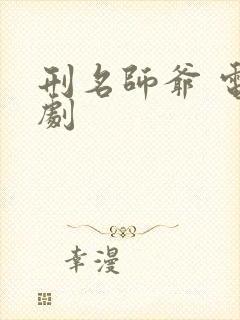 刑名師爺 電
劇
幸漫